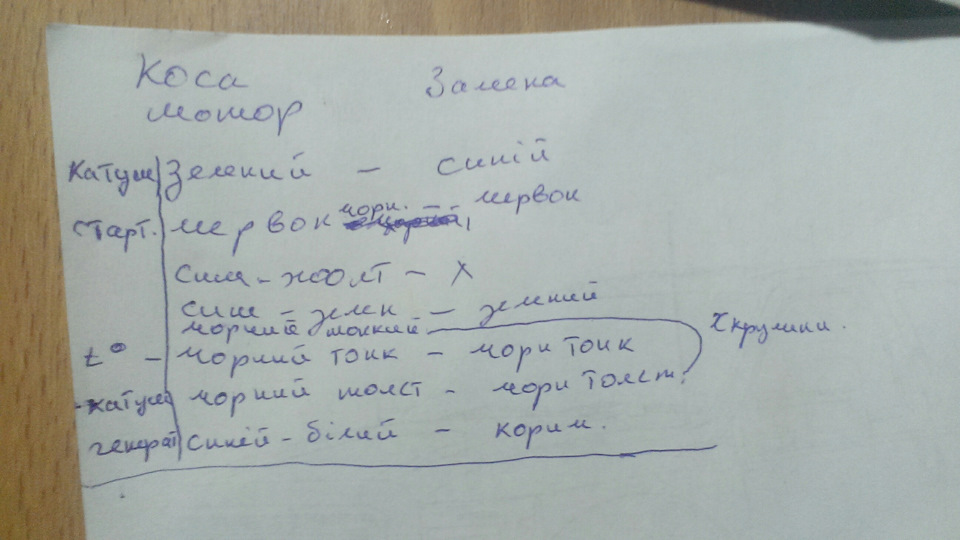 Коса Замена
мотор
Катуш Зелений - синій
Старт. червон чорн. - червон
Синя - жовт - X
синя - зелен - зелений
чорний тонкий
t° - чорний тонк - чорн тонк
катуш чорний толст - чорн толст.
генерат синєй - білий - коричн.